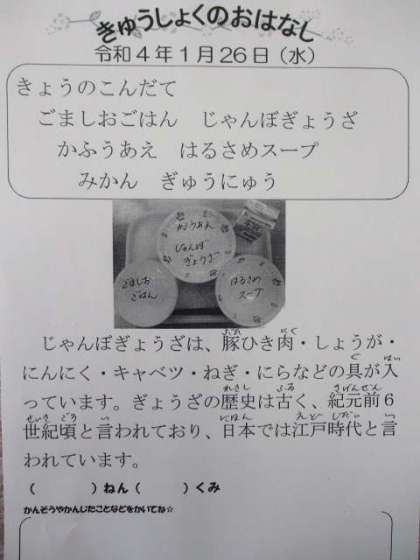 きゅうしょくのおはなし
令和４年１月２６日（水）
きょうのこんだて
ごましおごはん　じゃんぼぎょうざ
かふうあえ　はるさめスープ
みかん　ぎゅうにゅう
かふうあえ
じゃんぼ
ぎょうざ
ごましお
ごはん
はるさめ
スープ
じゃんぼぎょうざは、豚ひき肉・しょうが・
にんにく・キャベツ・ねぎ・にらなどの具が入
っています。ぎょうざの歴史は古く、紀元前６
世紀頃と言われており、日本では江戸時代と言
われています。
（　　　　）ねん（　　　　）くみ
かんそうやかんじたことなどをかいてね☆